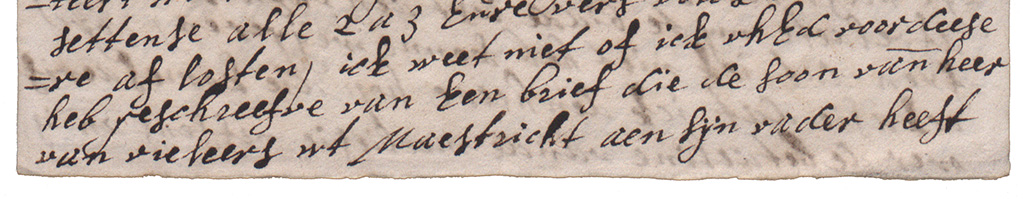 settense alle 2 a 3 Eure vers
=re af losten, ick weet niet of ick vhEd voordeese
heb geschreefve van Een brief die de soon van heer
van vieleers wt Maestricht aen sijn vader heeft